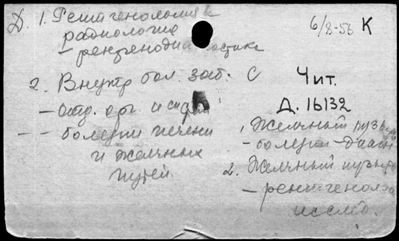 Д. 1. Рентгенология и
радиология
- рентгенодиагностика
2. Внутр. бол. заб. С
- отд. орг. и сист.
- - болезни печени
и желчных
путей
6/8-56 К
Чит.
Д. 16132
1. Желчный пузырь
- болезни - диагн
2. Желчный пузырь
- рентгенол-
исслед.